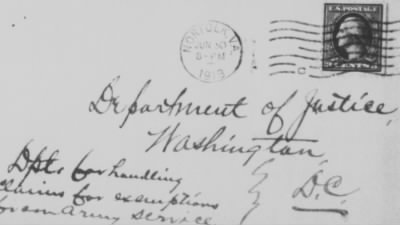 NORFOLK, VA.
JUN 10
8-PM
1918
U.S. POSTAGE
CENTS
Department of Justice,
Washington,
D.C.
Dpt. for handling
claims for exemptions
from Army Service